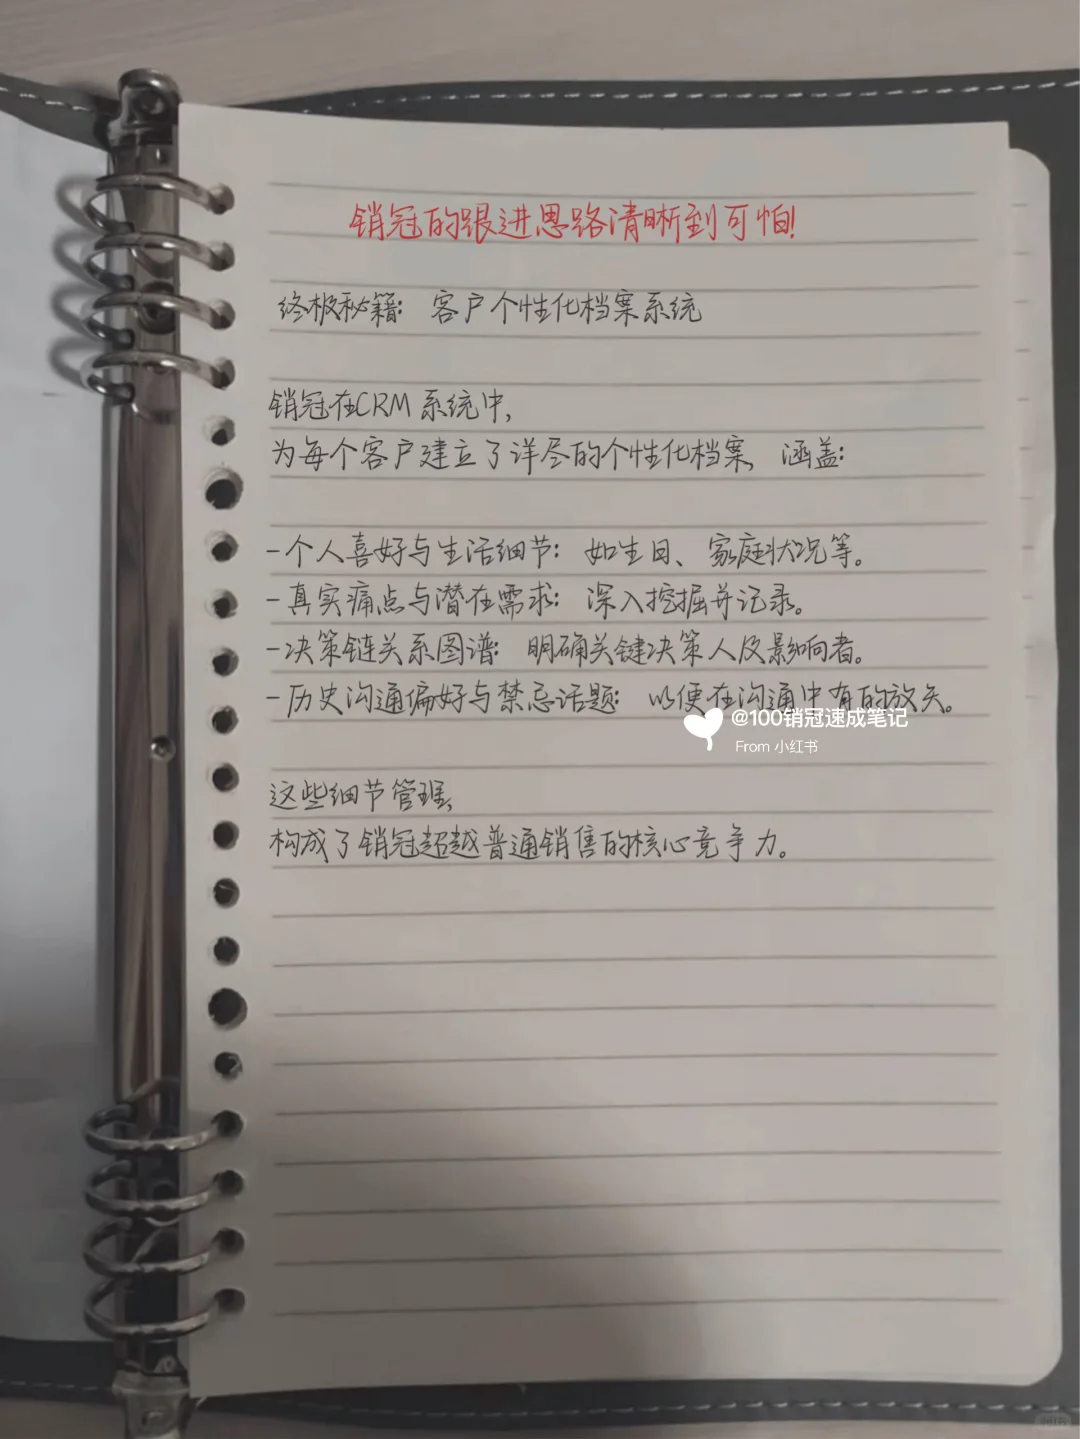 销冠的跟进思路清晰到可怕!
终极秘籍: 客户个性化档案系统
销冠在CRM系统中,
为每个客户建立了详尽的个性化档案, 涵盖:
-个人喜好与生活细节: 如生日、家庭状况等。
-真实痛点与潜在需求: 深入挖掘并记录。
-决策链关系图谱: 明确关键决策人及影响者。
-历史沟通偏好与禁忌话题: 以便在沟通中有的放矢。
@100销冠速成笔记
From 小红书
这些细节管理,
构成了销冠超越普通销售的核心竞争力。